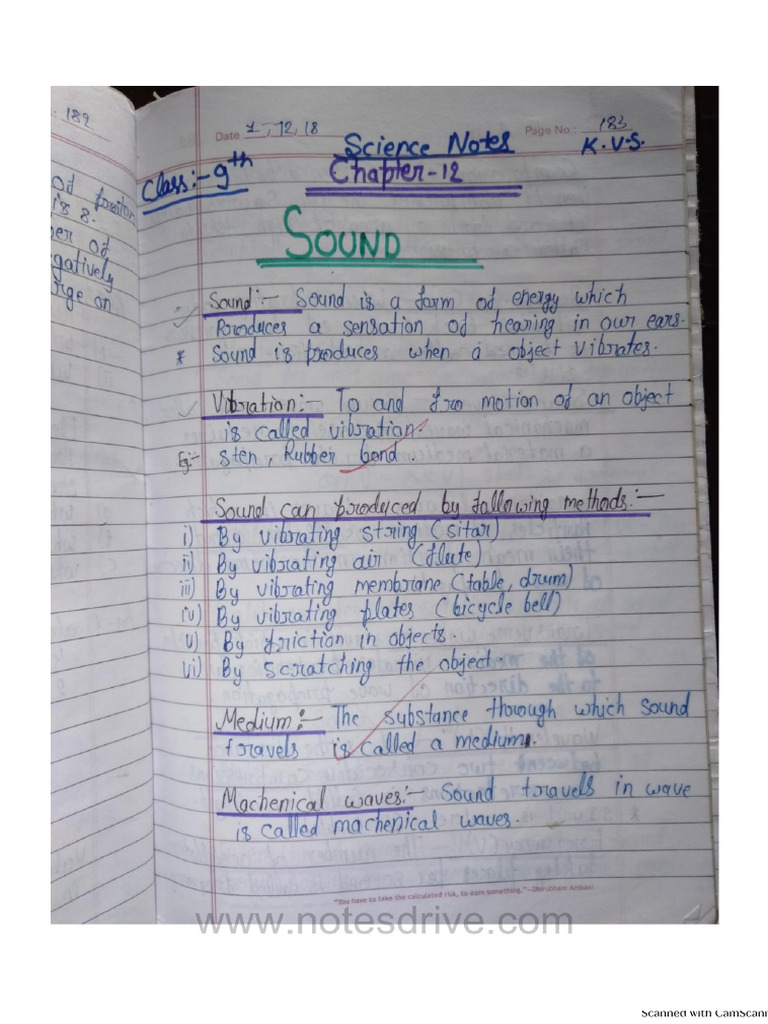 : 182
of positon
is 8.
er of
gatively
rge on
Date 1, 12, 18
Page No.: 183
Science Notes
K.V.S.
Class:- 9th
Chapter-12
SOUND
Sound:- Sound is a form of energy which
Produces a sensation of hearing in our ears.
* Sound is produces when a object vibrates.
Vibration:- To and fro motion of an object
is called vibration.
Eg:- sten, Rubber bond.
Sound can produced by following methods:-
i) By vibrating string (sitar)
ii) By vibrating air (flute)
iii) By vibrating membrane (table, drum)
iv) By vibrating plates (bicycle bell)
v) By friction in objects.
vi) By scratching the object.
Medium:- The substance through which sound
travels is called a medium.
Machenical waves:- Sound travels in wave
is called machenical waves.
"You have to take the calculated risk, to earn something." -Dhirubhai Ambani
www.notesdrive.com
Scanned with CamScann